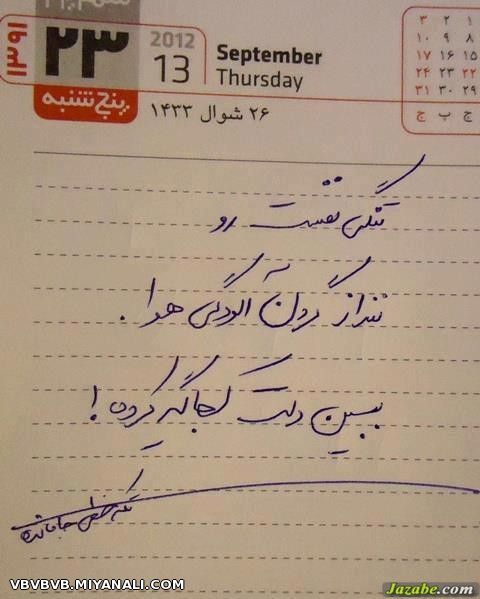 ۱۳۹۱
۲۳
پنج‌شنبه
2012
13
September
Thursday
۲۶ شوال ۱۴۳۳
۳ ۲ ۱
۱۰ ۹ ۸
۱۷ ۱۶ ۱۵
۲۴ ۲۳ ۲۲
۳۱ ۳۰ ۲۹
ج پ چ
تنگی نفست رو
ننداز گردن آلودگی هوا.
ببین دلت کجا گیر کرده!
VBVBVB.MIYANALI.COM
Jazabe.com